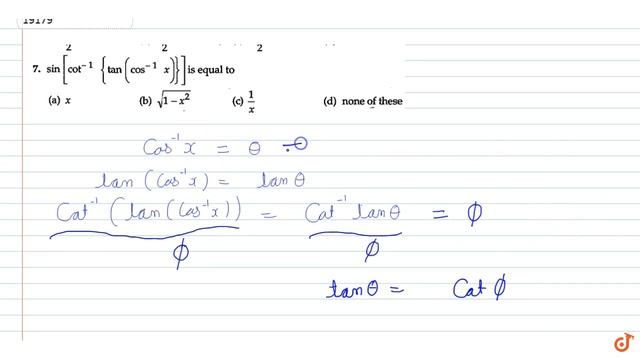 19179
2 2 2
7. sin[cot⁻¹ {tan(cos⁻¹ x)}] is equal to
(a) x (b) √1−x² (c) 1/x (d) none of these
Cos⁻¹x = θ
tan (Cos⁻¹x) = tanθ
Cot⁻¹ (tan(Cos⁻¹x)) = Cot⁻¹ tanθ = ϕ
ϕ ϕ
tanθ = Cot ϕ